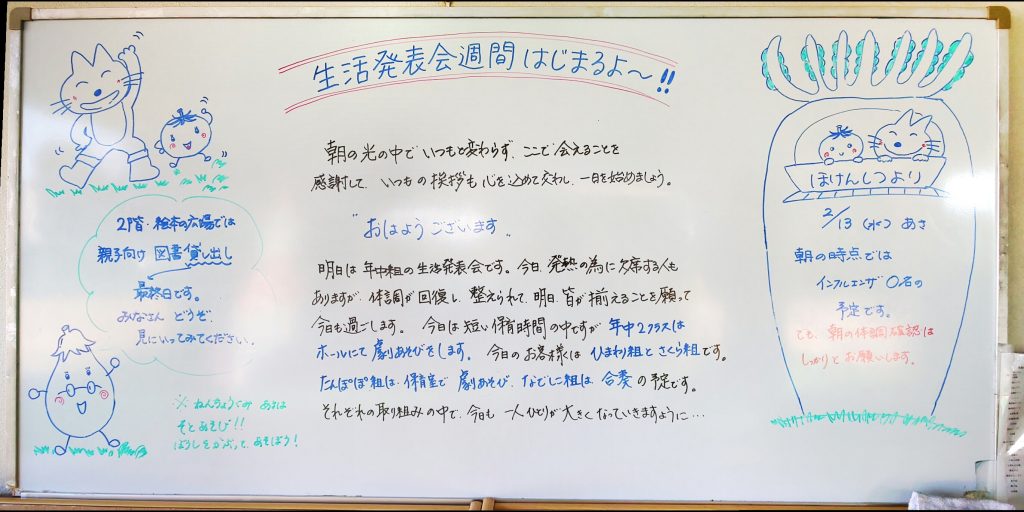 生活発表会週間はじまるよ〜!!
朝の光の中でいつもと変わらず、ここで会えることを
感謝して、いつもの挨拶も心を込めて交わし、一日を始めましょう。
"おはようございます"
明日は年中組の生活発表会です。今日、発熱の為に欠席する人も
ありますが、体調が回復し、整えられて、明日、皆が揃えることを願って
今日も過ごします。 今日は短い保育時間の中ですが 年中2クラスは
ホールにて劇あそびをします。 今日のお客様は ひまわり組とさくら組です。
たんぽぽ組は、保育室で 劇あそび、なでしこ組は 合奏の予定です。
それぞれの取り組みの中で、今日も 一人ひとりが大きくなっていきますように…
2階・絵本の広場では
親子向け 図書貸し出し
最終日です。
みなさん どうぞ、
見にいってみてください。
※ねんちょうぐみ あさは
そとあそび!!
ぼうしをかぶって、あそぼう!
ほけんしつより
2/13 (水) あさ
朝の時点では
インフルエンザ 0名の
予定です。
でも、朝の体調確認は
しっかりとお願いします。